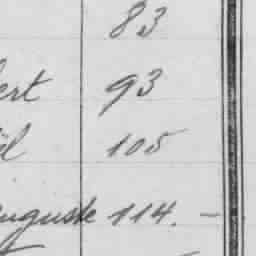 83
ert 93
el 105
auguste 114. —